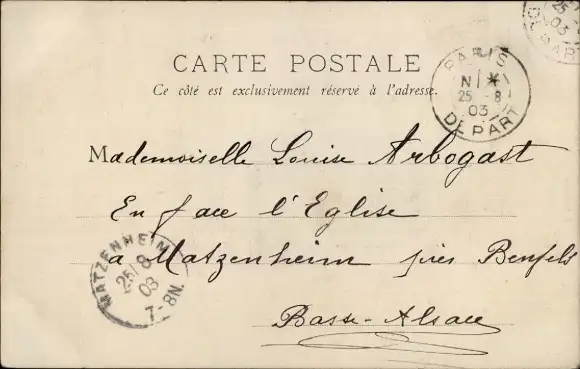 25 8
03
DEPART
CARTE POSTALE
Ce côté est exclusivement réservé à l'adresse.
PARIS
N *
25 - 8
03
DEPART
Mademoiselle Louise Arbogast
En face l'Eglise
a Matzenheim près Benfeld
Basse-Alsace
MATZENHEIM
25/8
03
7-8N.